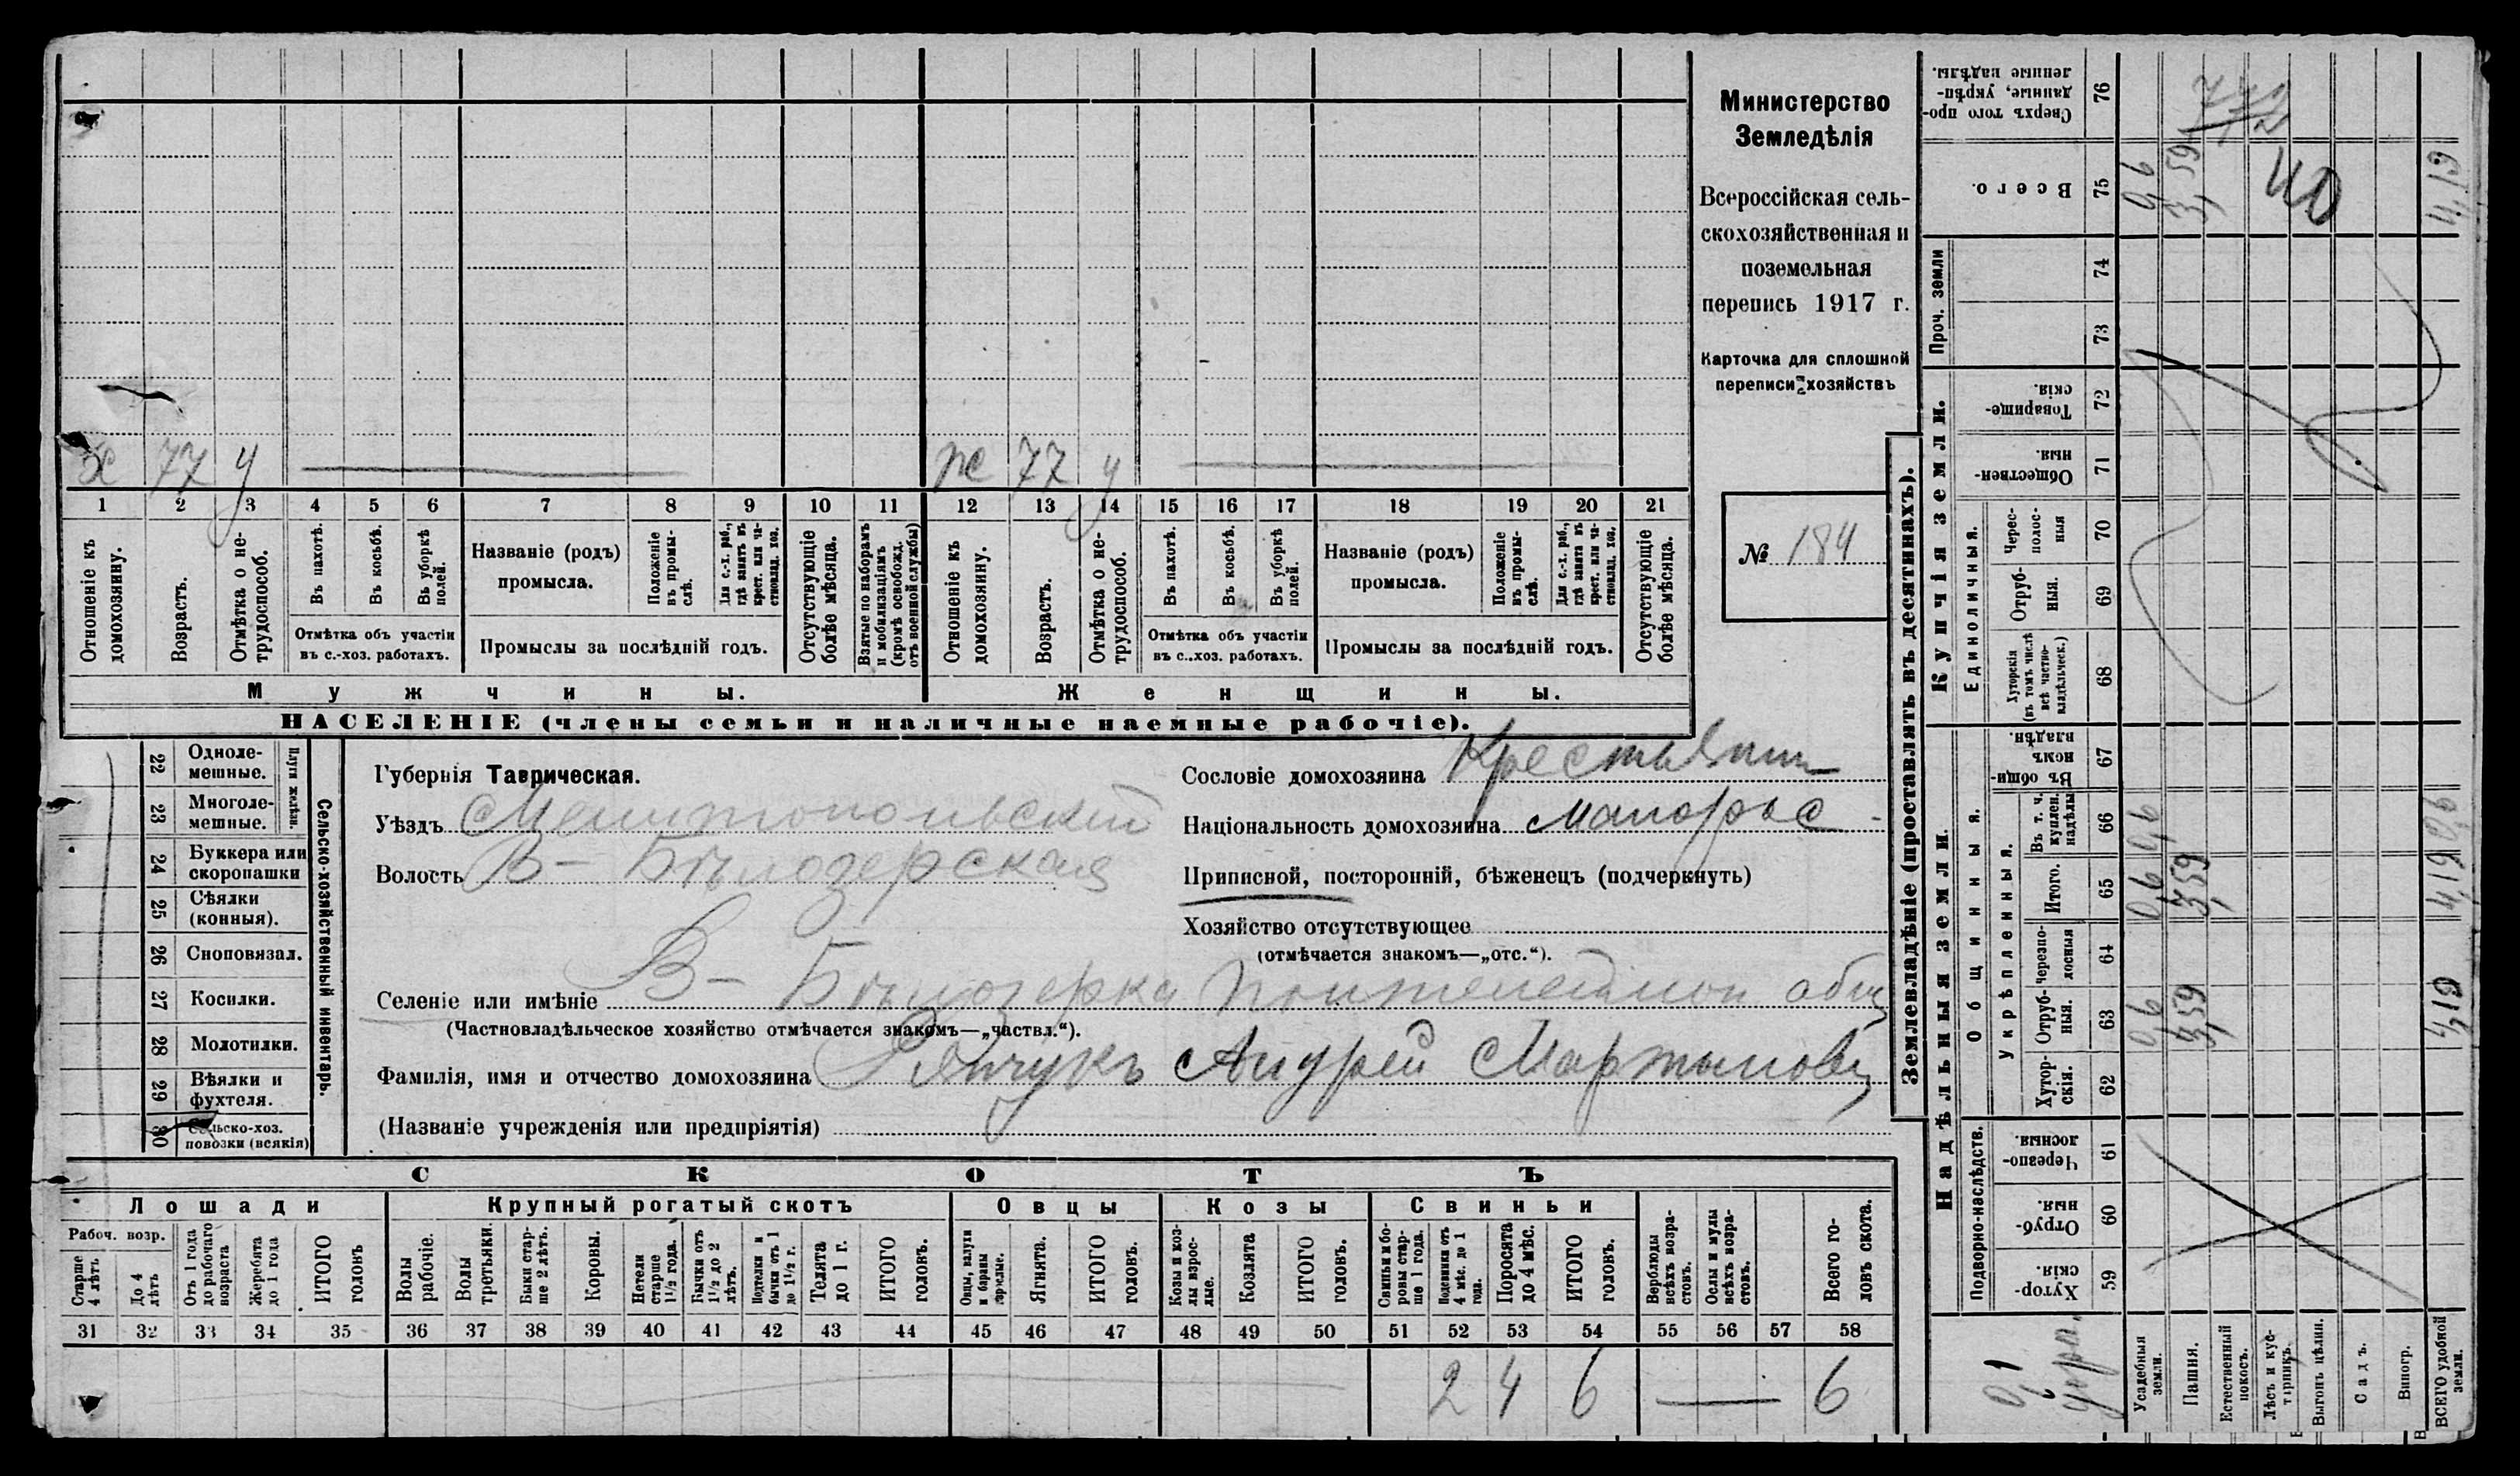 Министерство
Земледѣлія
Всероссійская сель-
скохозяйственная и
поземельная
перепись 1917 г.
Карточка для сплошной
переписи хозяйствъ
№ 184
х 77 у
ж 77 у
1 2 3 4 5 6 7 8 9 10 11 12 13 14 15 16 17 18 19 20 21
Отношеніе къ домохозяину.
Возрастъ.
Отмѣтка о не-трудоспособ.
Въ пахотѣ.
Въ косьбѣ.
Въ уборкѣ полей.
Отмѣтка объ участіи
въ с.-хоз. работахъ.
Названіе (родъ)
промысла.
Положеніе въ промы-слѣ.
Для с.-х. раб., гдѣ занятъ въ крест. или ча-стновлад. хоз.
Промыслы за послѣдній годъ.
Отсутствующіе болѣе мѣсяца.
Взятые по наборамъ и мобилизаціямъ (кромѣ освобожд. отъ военной службы)
Отношеніе къ домохозяину.
Возрастъ.
Отмѣтка о не-трудоспособ.
Въ пахотѣ.
Въ косьбѣ.
Въ уборкѣ полей.
Отмѣтка объ участіи
въ с.-хоз. работахъ.
Названіе (родъ)
промысла.
Положеніе въ промы-слѣ.
Для с.-х. раб., гдѣ занята въ крест. или ча-стновлад. хоз.
Промыслы за послѣдній годъ.
Отсутствующіе болѣе мѣсяца.
Мужчины.
Женщины.
НАСЕЛЕНІЕ (члены семьи и наличные наемные рабочіе).
Сельско-хозяйственный инвентарь.
Плуги желѣзн.
22 Одноле-мешные.
23 Многоле-мешные.
24 Буккера или скоропашки
25 Сѣялки (конныя).
26 Сноповязал.
27 Косилки.
28 Молотилки.
29 Вѣялки и фухтеля.
30 Сельско-хоз. повозки (всякія)
Губернія Таврическая.
Уѣздъ Мелитопольскій
Волость В-Бѣлозерская
Сословіе домохозяина Крестьянин
Національность домохозяина малорос
Приписной, посторонній, бѣженецъ (подчеркнуть)
Хозяйство отсутствующее
(отмѣчается знакомъ—„отс.“).
Селеніе или имѣніе В-Бѣлозерка общ
(Частновладѣльческое хозяйство отмѣчается знакомъ—„частвл.“).
Фамилія, имя и отчество домохозяина Андрей Мартынови
(Названіе учрежденія или предпріятія)
СКОТЪ
Лошади
Крупный рогатый скотъ
Овцы
Козы
Свиньи
Рабоч. возр.
Старше 4 лѣтъ
До 4 лѣтъ
Отъ 1 года до рабочаго возраста
Жеребята до 1 года
ИТОГО головъ
Волы рабочіе.
Волы третьяки.
Быки стар-ше 2 лѣтъ.
Коровы.
Нетели старше 1½ года.
Бычки отъ 1½ до 2 лѣтъ.
Подтелки и бычки отъ 1 до 1½ г.
Телята до 1 г.
ИТОГО головъ.
Овцы, валухи и бараны взрослые.
Ягнята.
ИТОГО головъ.
Козы и коз-лы взрос-лые.
Козлята
ИТОГО головъ.
Свиньи и бо-ровы стар-ше 1 года.
Подсвинки отъ 4 мѣс. до 1 года.
Поросята до 4 мѣс.
ИТОГО головъ.
Верблюды всѣхъ возра-стовъ.
Ослы и мулы всѣхъ возра-стовъ.
Всего го-ловъ скота.
31 32 33 34 35 36 37 38 39 40 41 42 43 44 45 46 47 48 49 50 51 52 53 54 55 56 57 58
2 4 6 — 6
Землевладѣніе (проставлять въ десятинахъ).
Надѣльныя земли.
Купчія земли.
Проч. земли
Подворно-наслѣдств.
Общинныя.
Укрѣпленныя.
Единоличныя.
59 Хутор-скія.
60 Отруб-ныя.
61 Черезпо-лосныя.
62 Хутор-скія.
63 Отруб-ныя. 0,6 3,59 4,19
64 Черезпо-лосныя
65 Итого. 0,6 3,59 4,19
66 Въ т. ч. куплен. надѣлы 0,6 0,6
67 Въ общи-номъ владѣн.
68 Хуторскія (въ томъ числѣ всѣ частно-владѣльческ.)
69 Отруб-ныя.
70 Черес-полос-ныя
71 Обществен-ныя.
72 Товарище-скія.
73
74
75 Всего. 0,6 3,59 4,19
76 Сверхъ того про-данные, укрѣп-ленные надѣлы.
Усадебныя земли.
Пашня.
Естественный покосъ.
Лѣсъ и кус-тарникъ.
Выгонъ цѣлин.
Садъ.
Виногр.
ВСЕГО удобной земли.